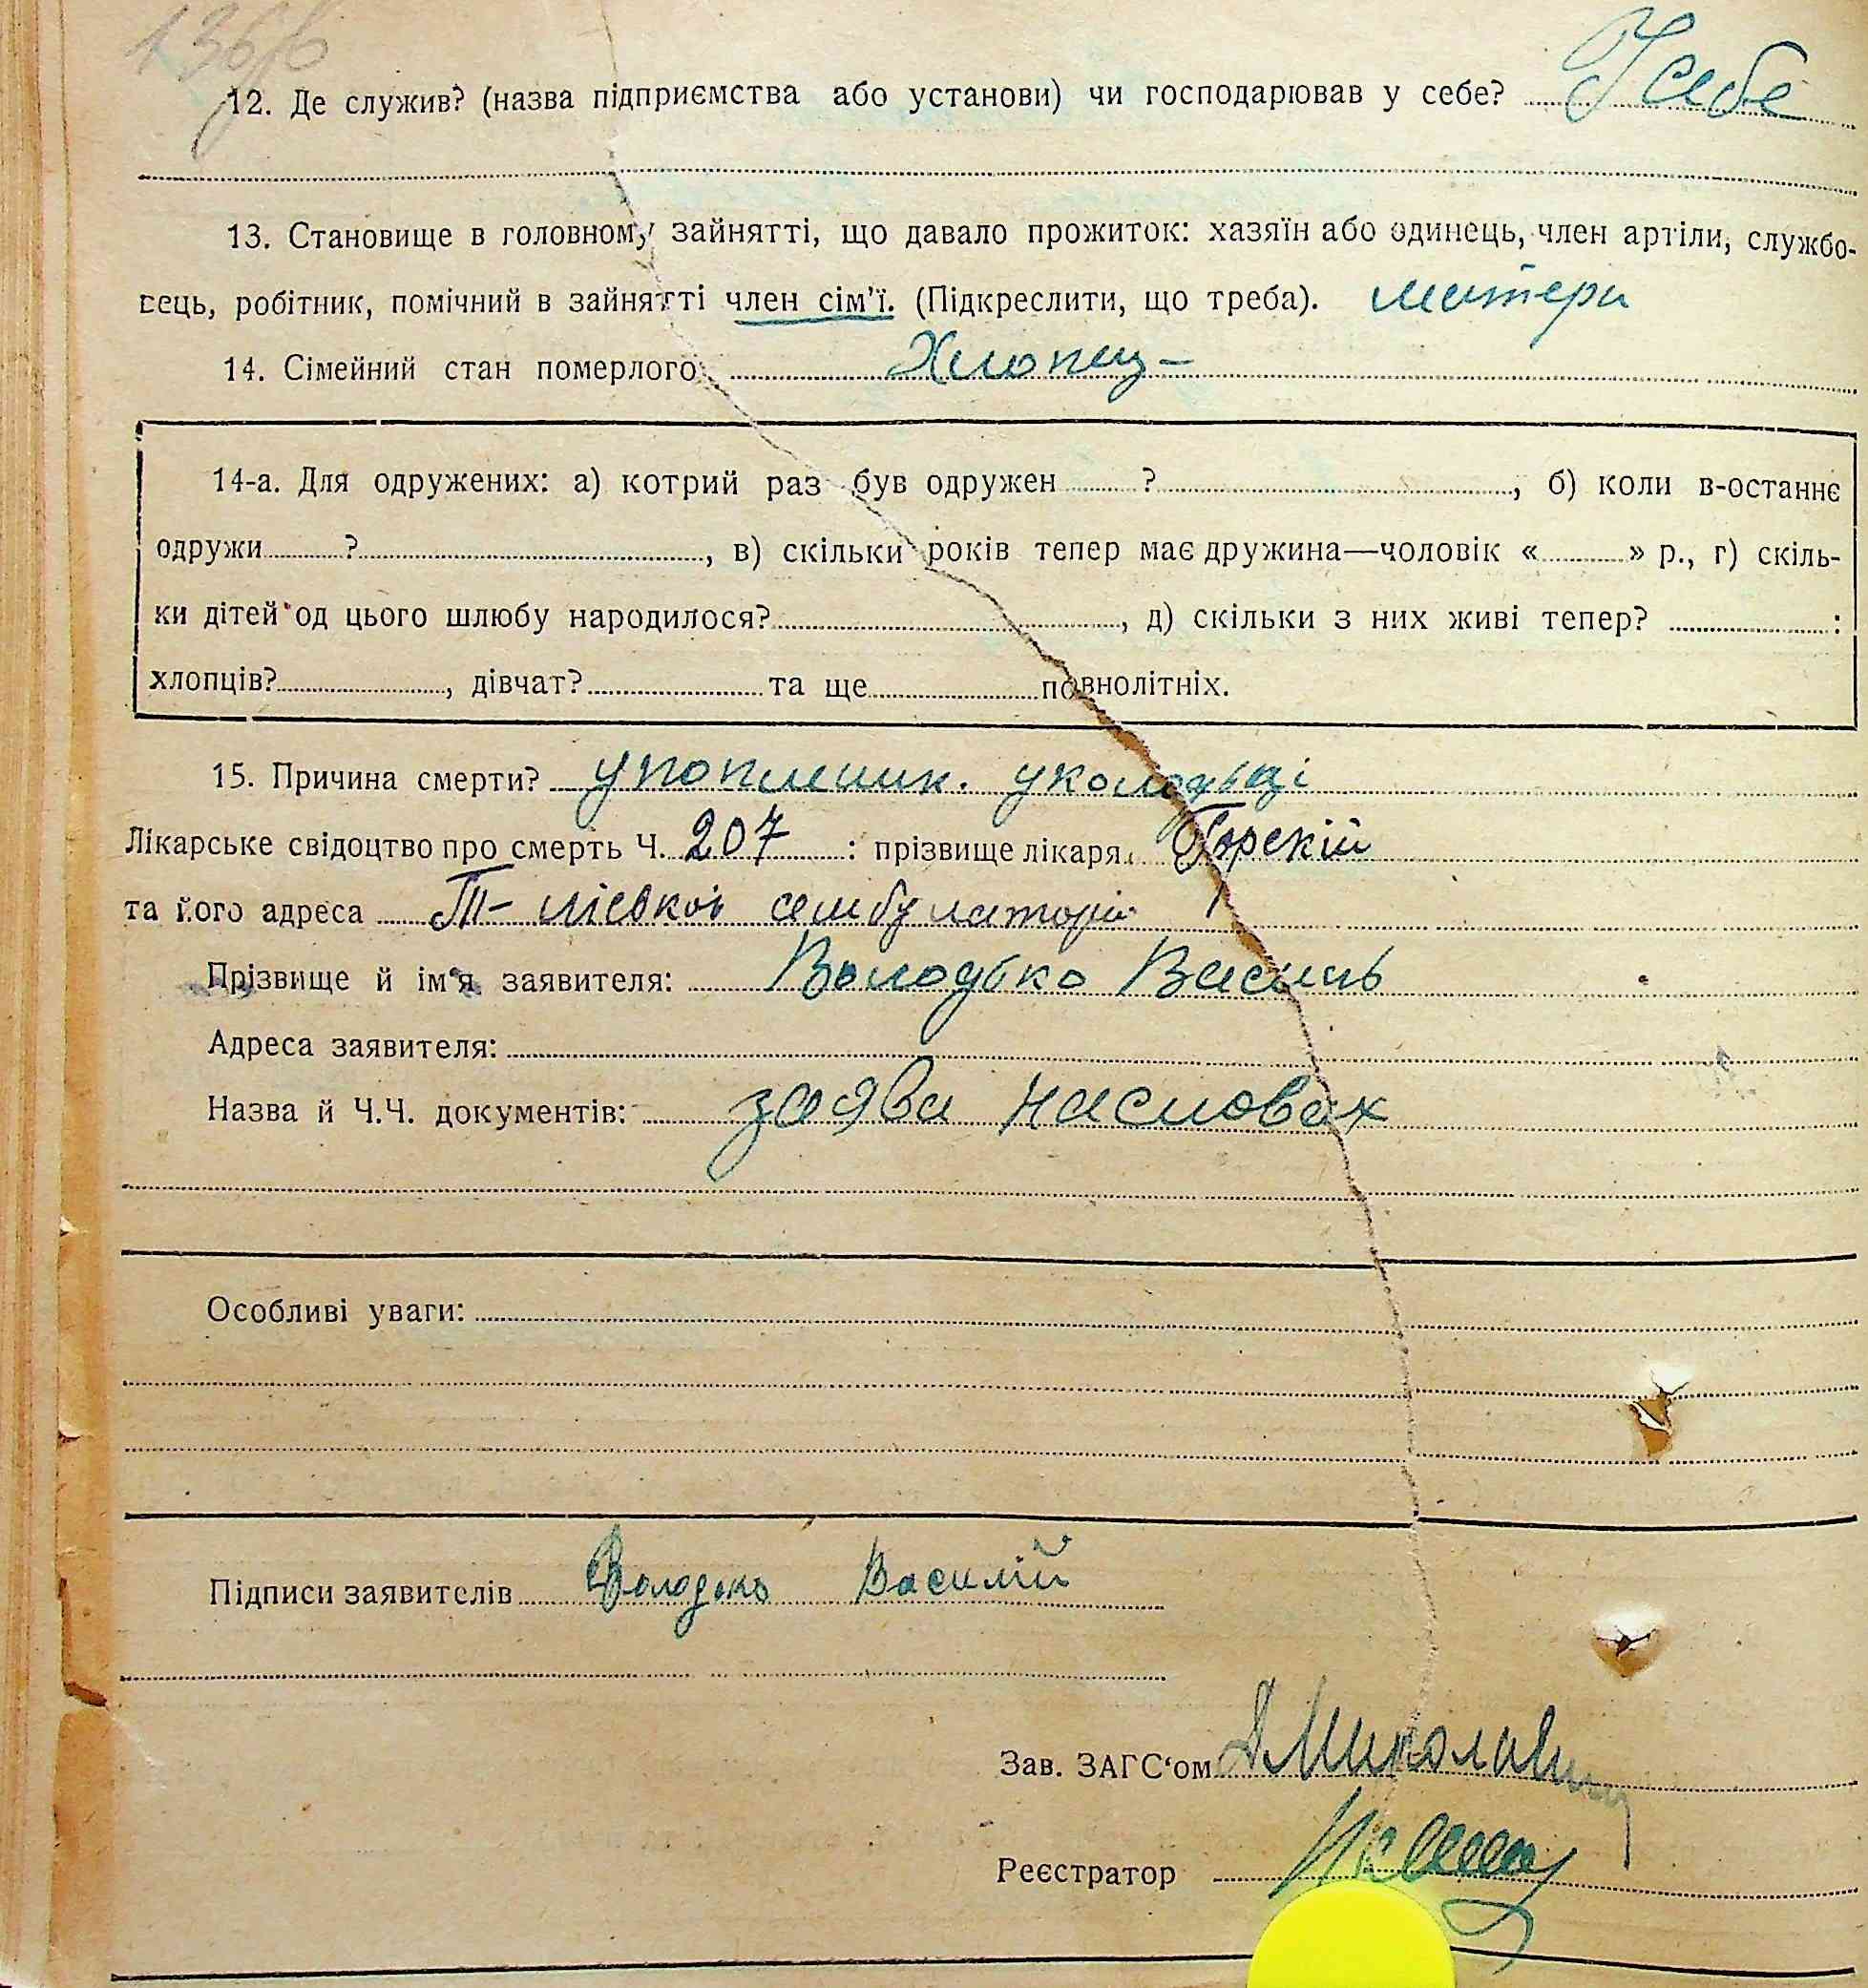 136/б
12. Де служив? (назва підприємства або установи) чи господарював у себе? У себе
13. Становище в головному зайнятті, що давало прожиток: хазяїн або одинець, член артіли, службо-
вець, робітник, помічний в зайнятті член сім'ї. (Підкреслити, що треба). матери
14. Сімейний стан померлого: Хлопец-
14-а. Для одружених: а) котрий раз був одружен ? , б) коли в-останнє
одружи ? , в) скільки років тепер має дружина—чоловік « » р., г) скіль-
ки дітей од цього шлюбу народилося? , д) скільки з них живі тепер? :
хлопців? , дівчат? та ще повнолітніх.
15. Причина смерти? уколодьці
Лікарське свідоцтво про смерть Ч. 207 : прізвище лікаря Горскій
та його адреса амбулаторіі
Прізвище й ім'я заявителя: Володько Василь
Адреса заявителя:
Назва й Ч.Ч. документів: заява насловах
Особливі уваги:
Підписи заявителів Володько Василій
Зав. ЗАГС'ом
Реєстратор